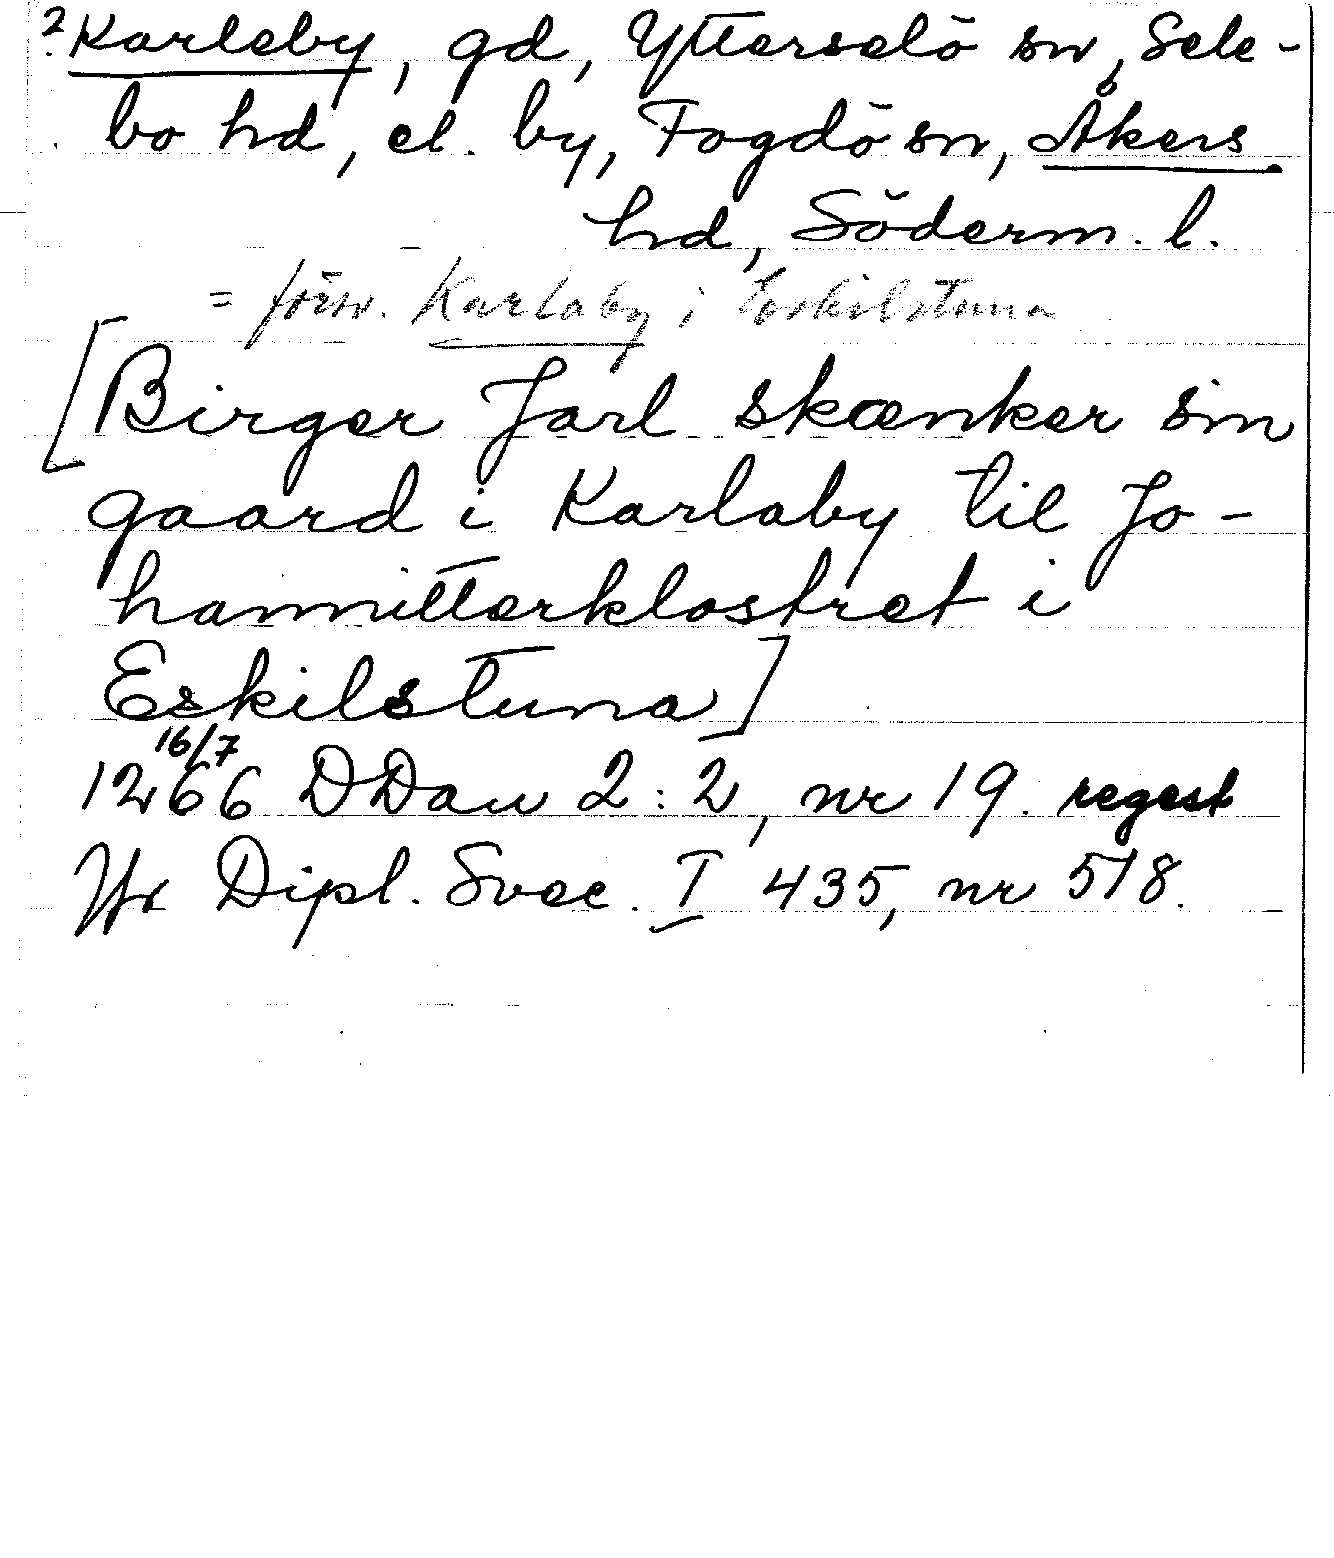 ? Karleby, gd, Ytterselö sn, Sele-
bo hd, el. by, Fogdö sn, Åkers
hd, Söderm. l.
= försv. Karlaby i Eskilstuna
[Birger Jarl skænker sin
gaard i Karlaby til Jo-
hannitterklostret i
Eskilstuna]
16/7
1266 DDan 2:2, nr 19. regest
Jfr Dipl. Svec. I 435, nr 518.